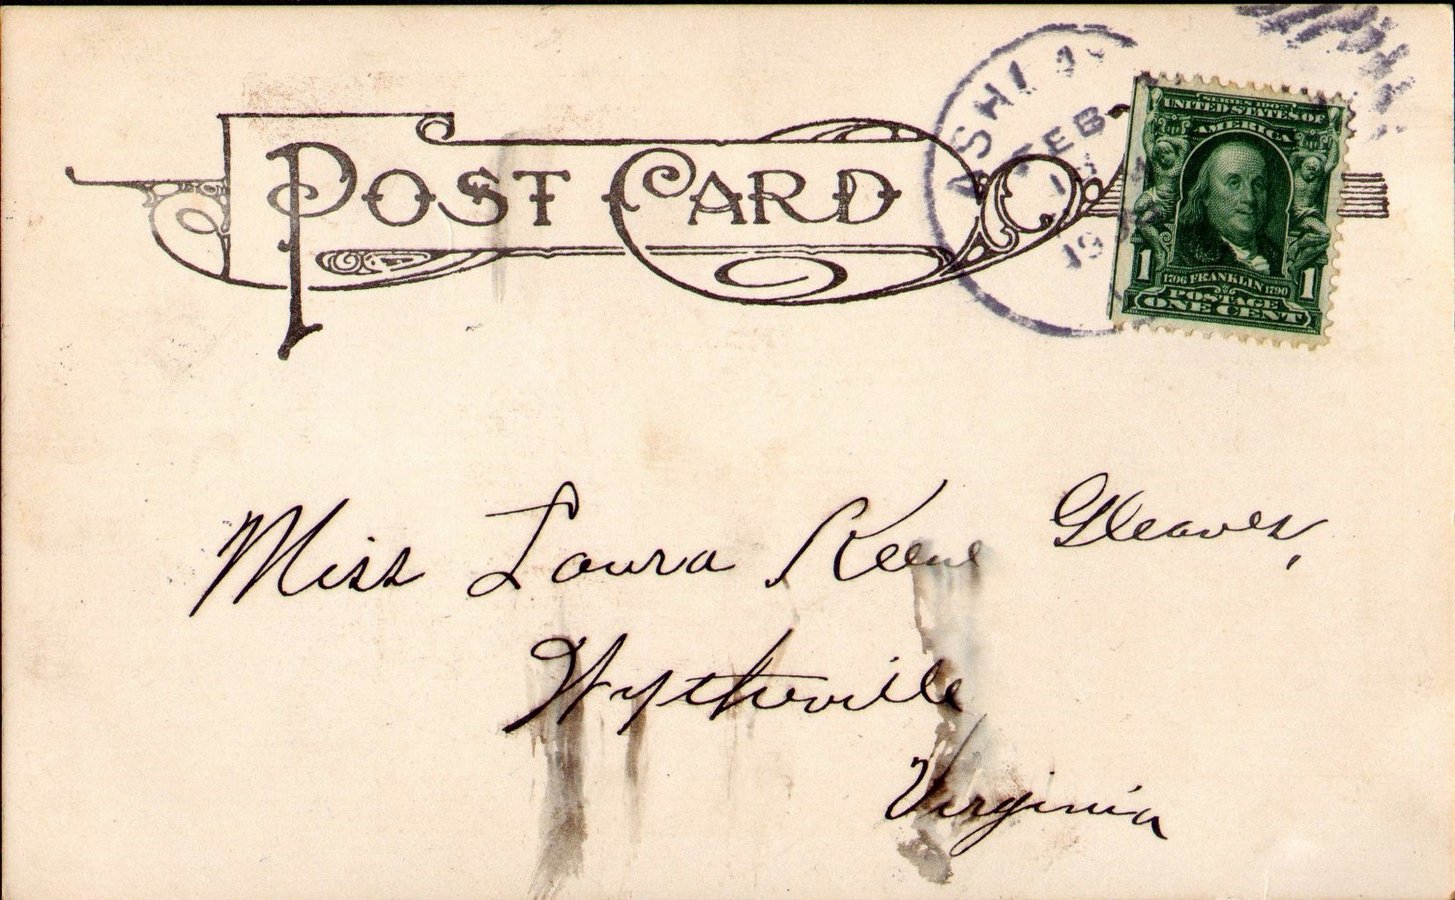 POST CARD
ASHL
FEB
SERIES 1902
UNITED STATES OF
AMERICA
1706 FRANKLIN 1790
1 POSTAGE 1
ONE CENT
Miss Laura Keene Gleaves,
Wytheville
Virginia